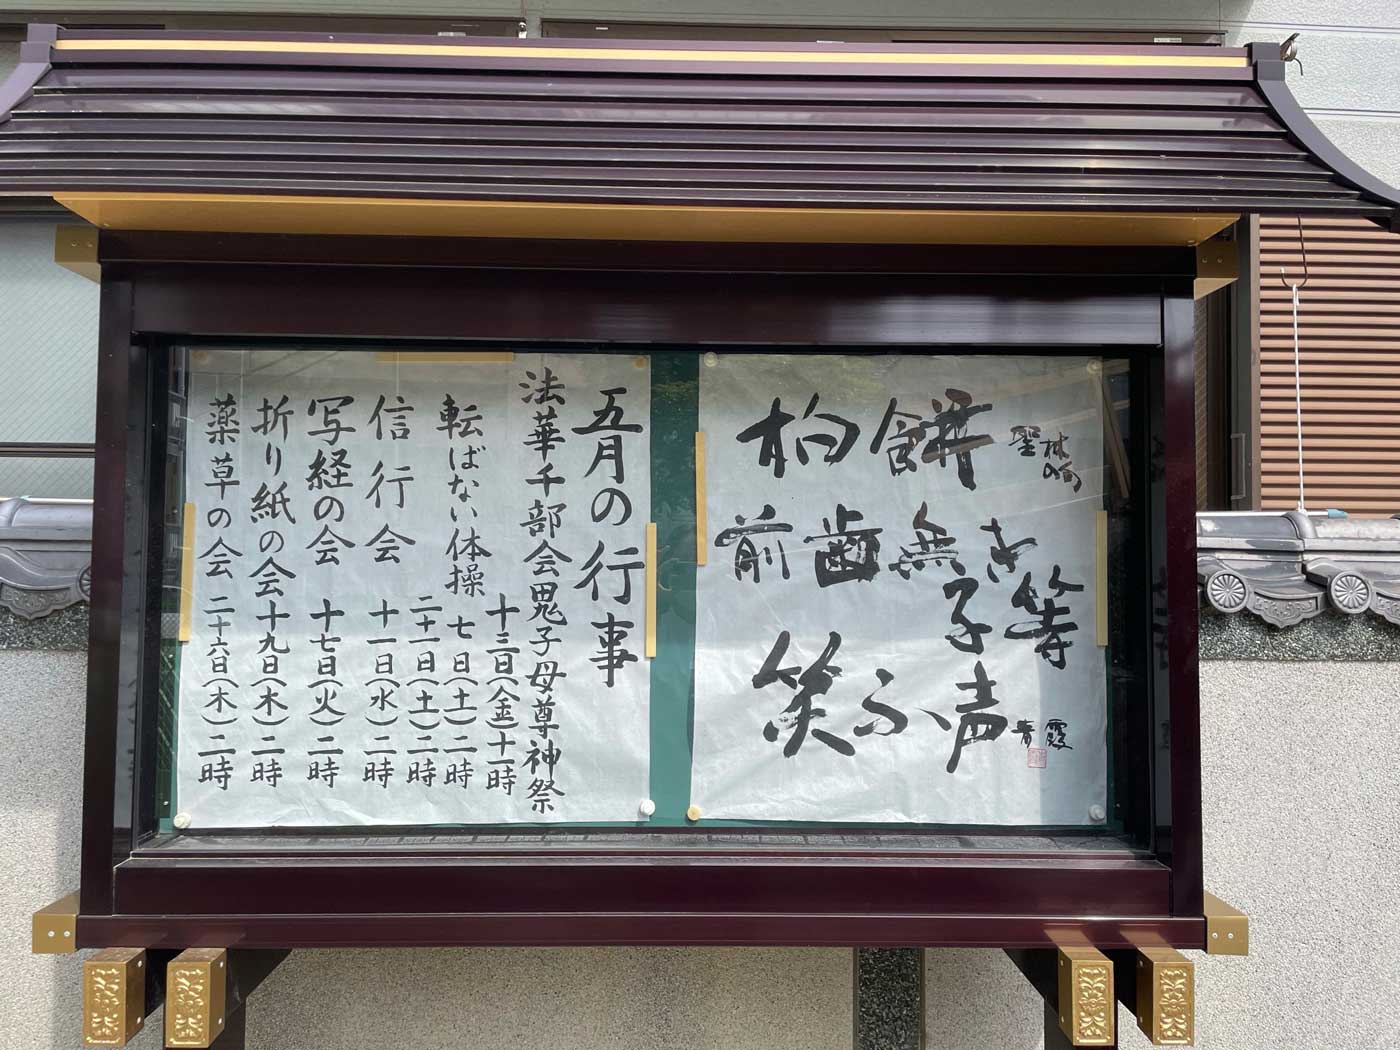 柏餅
前歯無き
子等
笑ふ声
青霞
五月の行事
法華千部会鬼子母尊神祭
十三日(金)十一時
転ばない体操 七日(土)二時
二十一日(土)二時
信行会 十一日(水)二時
写経の会 十七日(火)二時
折り紙の会 十九日(木)二時
薬草の会 二十六日(木)二時